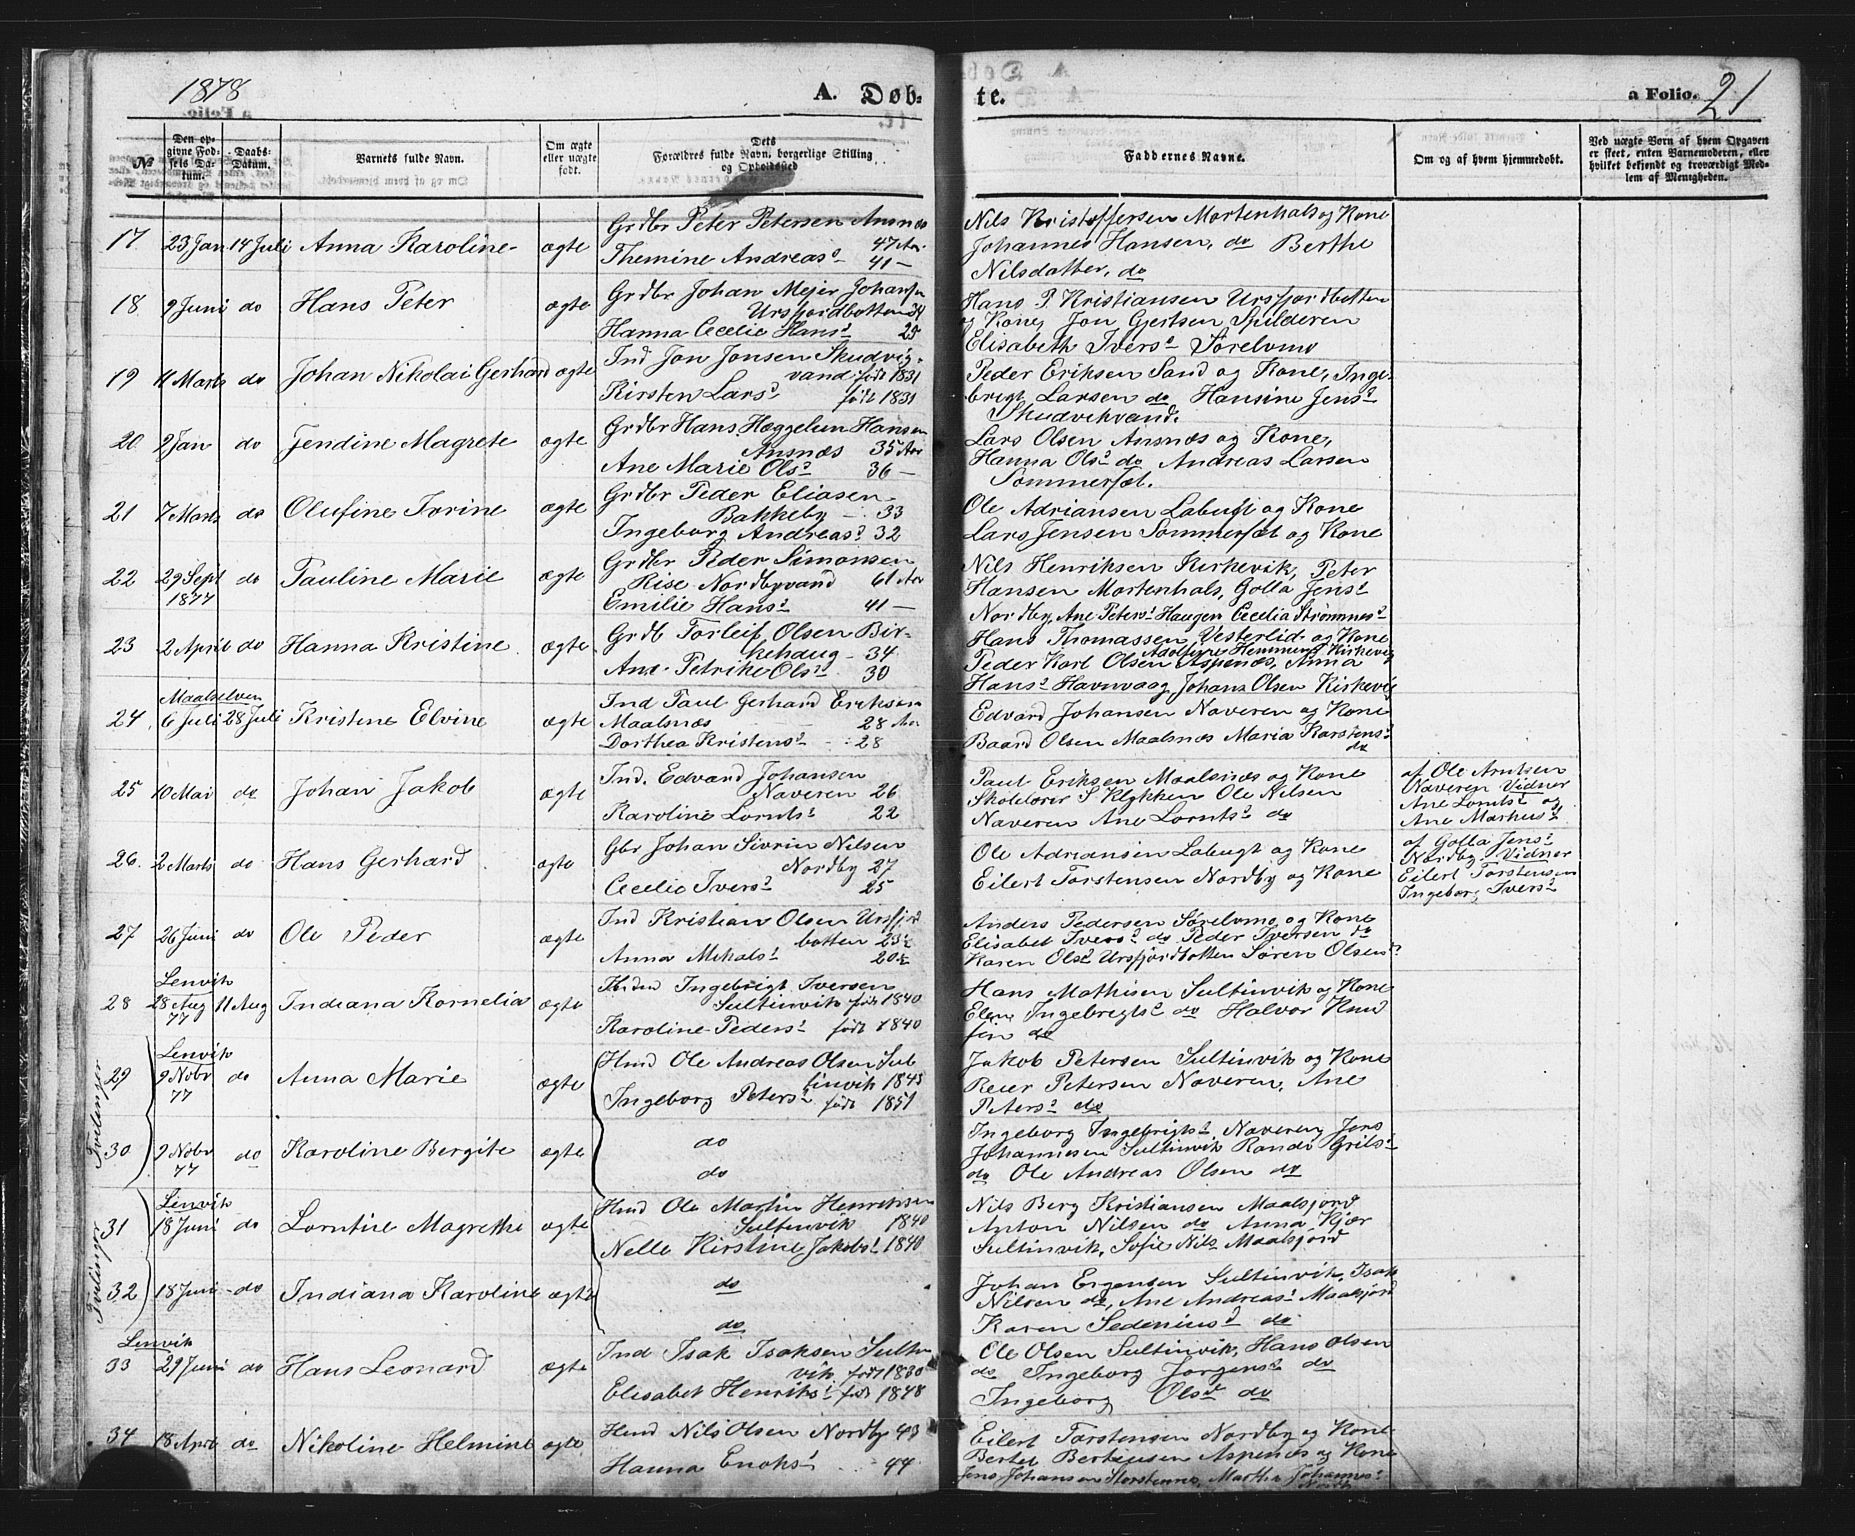 1878
A. Døb-
te.
a Folio. 21
№
Den op-
givne Fød-
sels Da-
tum.
Daabs-
Datum.
Barnets fulde Navn.
Om ægte
eller uægte
født.
Dets
Forældres fulde Navn, borgerlige Stilling
og Opholdssted
Faddernes Navne.
Om og af hvem hjemmedøbt.
Ved uægte Børn af hvem Opgaven
er skeet, enten Barnemoderen, eller
hvilket bekjendt og troværdigt Med-
lem af Menigheden.
17. 23 Jan. 14 Juli Anna Karoline ægte
Grdbr Peter Petersen Ansnæs
47 Aar
Themine Andreasd 41 —
Nils Kristoffersen Mortenhals og Kone
Johannes Hansen, do Berthe
Nilsdatter, do
18. 9 Juni do Hans Peter ægte
Grdbr Johan Mejer Johansen
Ursfjordbotten 34
Hanna Cecelie Hansd 25
Hans P. Kristiansen Ursfjordbotten
og Kone, Jon Gjertsen Spilderen
Elisabeth Iversd Sørelvmo
19 11 Marts do Johan Nikolai Gerhard ægte
Ind Jon Jonsen Skudvig-
vand født 1831
Kirsten Larsd født 1831
Peder Eriksen Sand og Kone, Inge-
brigt Larsen do Hansine Jensd
Skudvikvand.
20. 9 Jan do Jendine Magrete ægte
Grdbr Hans Hæggelun Hansen
Ansnæs 35 Aar
Ane Marie Olsd 36 —
Lars Olsen Ansnæs og Kone,
Hanna Olsd do Andreas Larsen
Sommersæt.
21 7 Marts do Olufine Ivrine ægte
Grdbr Peder Eliasen
Bakkeby — 33
Ingeborg Andreasd 32
Ole Adriansen Labugt og Kone
Lars Jensen Sommersæt og Kone
22 29 Sept do Pauline Marie ægte
1877
Grdbr Peder Simonsen
Rise Nordbyvand 61 Aar
Emilie Hansd 41 —
Nils Henriksen Kirkevik, Peter
Hansen Mortenhals, Golla Jensd
Nordby, Ane Petersd Haugen Cecelia Strømnesd
23 2 April do Hanna Kristine ægte
Grdb Torleif Olsen Bir-
kehaug 34
Ane Petrike Olsd 30
Hans Thomassen Vesterlid og Kone
Adolfine Hemmingd Kirkevig
Peder Karl Olsen Aspenæs, Anna
Hansd Havnvaag, Johans Olsen Kirkevig
Maalselven
24 6 Juli 28 Juli Kristine Elvine ægte
Ind Paul Gerhard Eriksen
Maalsnæs 28 Aar
Dorthea Kristensd 28
Edvard Johansen Naveren og Kone
Baard Olsen Maalsnæs Maria Karstensd
do
25 10 Mai do Johan Jakob ægte
Ind. Edvard Johansen
Naveren 26
Karoline Lorntsd 22
Paul Eriksen Maalsnæs og Kone
Skolelærer S Klykken Ole Nilsen
Naveren Ane Lorntsd do
af Ole Arntsen
Naveren Vidner
Ane Lorntsd og
Ane Markusd
26. 2 Marts do Hans Gerhard ægte
Gbr Johan Sivrin Nilsen
Nordby 27
Cecelie Iversd 25
Ole Adriansen Labugt og Kone
Eilert Torstensen Nordby og Kone
af Golla Jensd
Nordby. Vidner
Eilert Torstensen
Ingeborg Iversd
27 26 Juni do Ole Peder ægte
Ind Kristian Olsen Ursfjord
botten 23½
Anna Mikalsd 20½
Anders Pedersen Sørelvmo og Kone
Elisabet Iversd do Peder Iversen do
Karen Olsd Ursfjordbotten Søren Olsend
Lenvik
28 28 Aug 11 Aug Indiana Kornelia ægte
77
Ingebrigt Iversen
Sultinvik født 1840
Karoline Pedersd født 1840
Hans Mathisen Sultinvik og Kone
Elen Ingebrigtsd do Halvor Knud
sen do
Tvilinger
Lenvik
29 9 Nobr do Anna Marie ægte
77
Hmd Ole Andreas Olsen Sul
tinvik 1845
Ingeborg Petersd født 1851
Jakob Petersen Sultinvik og Kone
Reier Petersen Naveren, Ane
Petersd do
30 9 Nobr do Karoline Bergite ægte
77
do
do
Ingeborg Ingebrigtsd Naveren, Jens
Johannesen Sultinvik Randi Grilsd
do Ole Andreas Olsen do
Tvilinger
Lenvik
31 18 Juni do Lorntine Magrethe ægte
Hmd Ole Martin Henriksen
Sultinvik 1840
Nelle Kirstine Jakobsd 1840
Nils Berg Kristiansen Maalsfjord
Anton Nilsen do Anna Kjær
Sultinvik, Sofie Nils Maalsfjord
32 18 Juni do Indiana Karoline ægte
do
do
Johan Ergensen Sultinvik, Isak
Nilsen do, Ane Andreasd Maalsfjord
Karen Sedeniusd do
Lenvik
33 29 Juni do Hans Leonard ægte
Ind Isak Isaksen Sultin
vik født 1830
Elisabet Henriksd født 1848
Ole Olsen Sultinvik, Hans Olsen
do Ingeborg Jørgensd do
Ingeborg Olsd do
34 18 April do Nikoline Helmine ægte
Hmd Nils Olsen Nordby 43
Hanna Enoksd 44
Eilert Torstensen Nordby og Kone
Bertel Bertinsen Aspenæs og Kone
Jens Johansen Storstennes, Martha Johannesd
Nordb